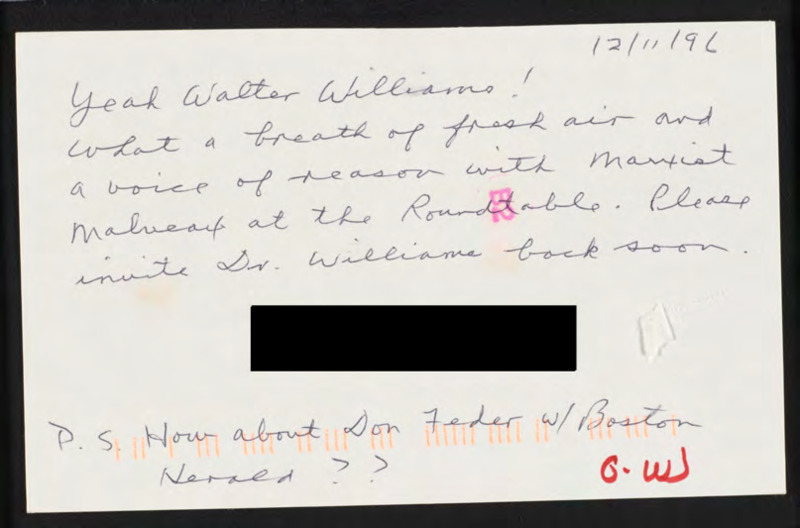 12/11/96
Yeah Walter Williams!
What a breath of fresh air and
a voice of reason with Marxist
Malveax at the Roundtable. Please
invite Dr. Williams back soon.
P.S. How about Don Feder w/ Boston
Herald ??
G.W